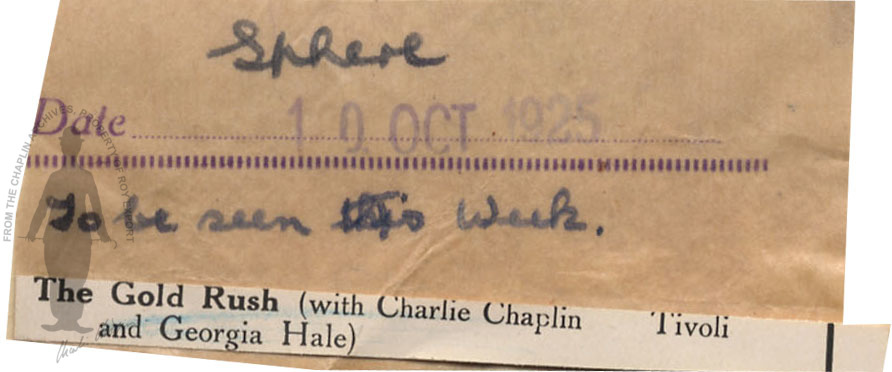 Sphere
Date 10 OCT 1925
To be seen this Week.
The Gold Rush (with Charlie Chaplin Tivoli
and Georgia Hale)
FROM THE CHAPLIN ARCHIVES, PROPERTY OF ROY EXPORT